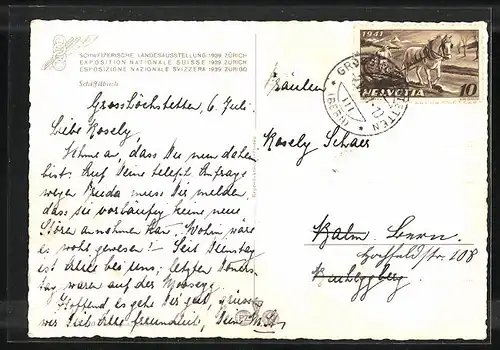 SCHWEIZERISCHE LANDESAUSSTELLUNG 1939 ZÜRICH
EXPOSITION NATIONALE SUISSE 1939 ZURICH
ESPOSIZIONE NAZIONALE SVIZZERA 1939 ZURIGO
Schifflibach
Grosshöchstetten, 6. Juli
Liebe Rosely
Nehme an, dass Du nun daheim
bist. Auf Deine teleph. Anfrage
wegen Frieda muss Dir melden,
dass sie vorläufig keine neue
Stören annehmen kan. Wohin wäre
es wohl gewesen! – Seit Dienstag
ist bei uns; letzten Donners-
tag waren auf der Moosegg.
Hoffend, es gehe Dir gut, grüssen
wir Dich alle freundlich, Deine
1941
HELVETIA
10
(BERN)
Fräulein
Rosely Schaer
Kalm Bern
Hochfeldstr. 108
Bucheggberg